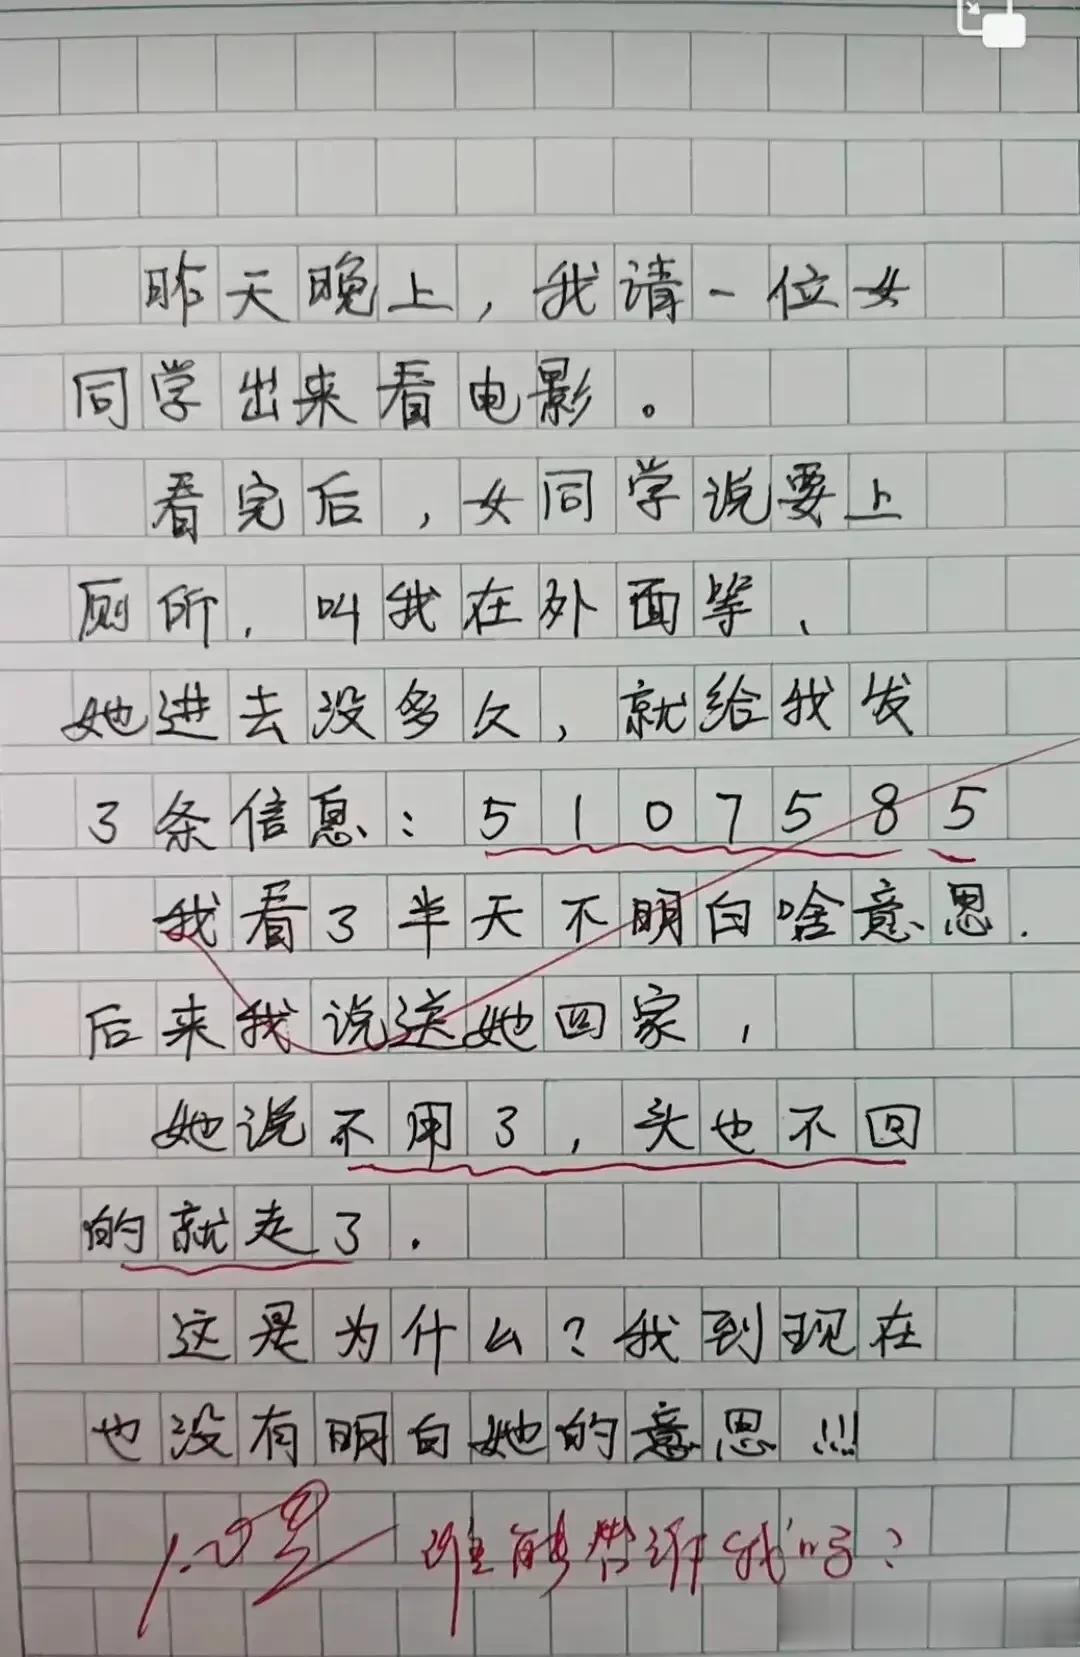 昨天晚上，我请一位女
同学出来看电影。
看完后，女同学说要上
厕所，叫我在外面等、
她进去没多久，就给我发
3条信息：5107585
我看了半天不明白啥意思.
后来我说送她回家，
她说不用了，头也不回
的就走了.
这是为什么？我到现在
也没有明白她的意思!!!
谁能告诉我吗？